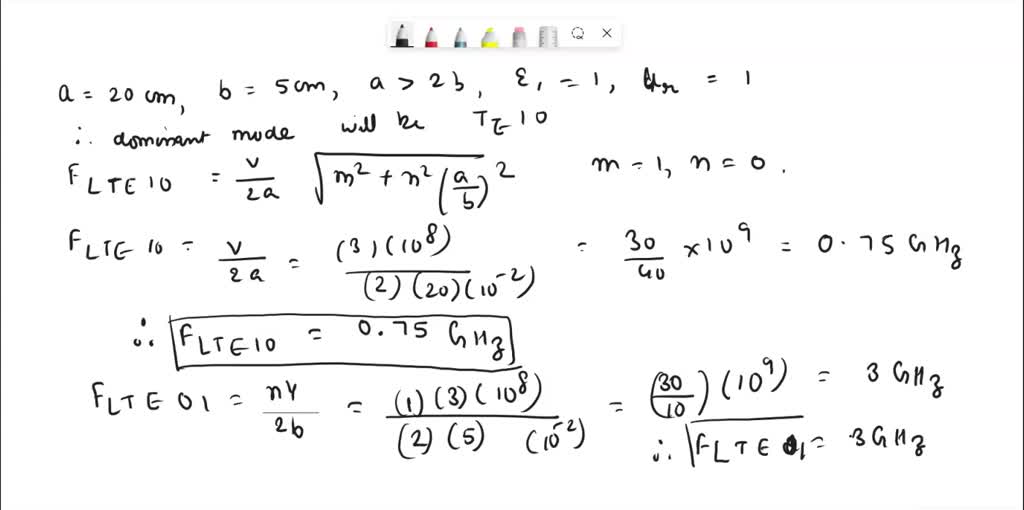 a = 20 cm, b = 5cm, a > 2b, ε, = 1, μr = 1
∴ dominant mode will be TE 10
F LTE 10 = v/2a √(m² + n² (a/b)²) m = 1, n = 0.
F LTE 10 = v/2a = (3)(10⁸)/(2)(20)(10⁻²) = 30/40 × 10⁹ = 0.75 GHz
∴ F LTE 10 = 0.75 GHz
F LTE 01 = nv/2b = (1)(3)(10⁸)/(2)(5)(10⁻²) = (30/10)(10⁹) = 3 GHz
∴ F LTE 01 = 3 GHz